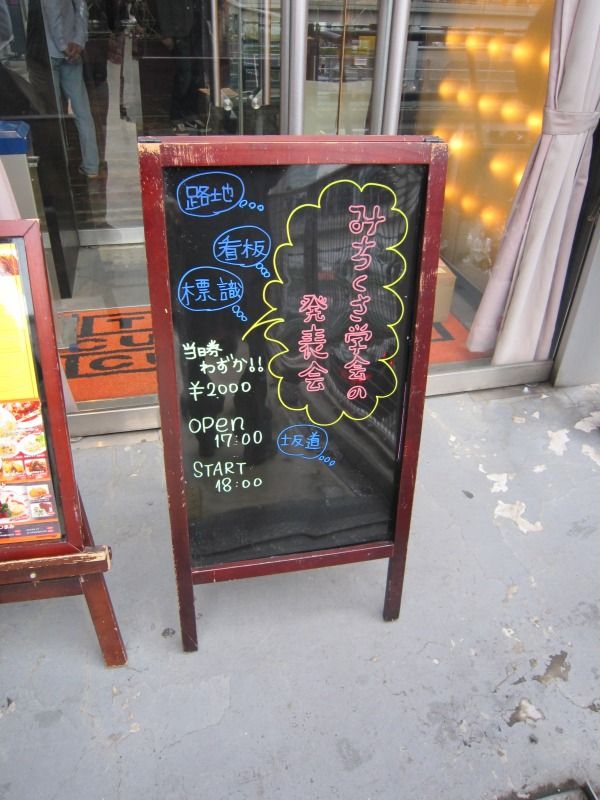 路地
看板
標識
みちくさ学会の
発表会
当日券
わずか!!
¥2,000
OPEN
17:00
START
18:00
坂道